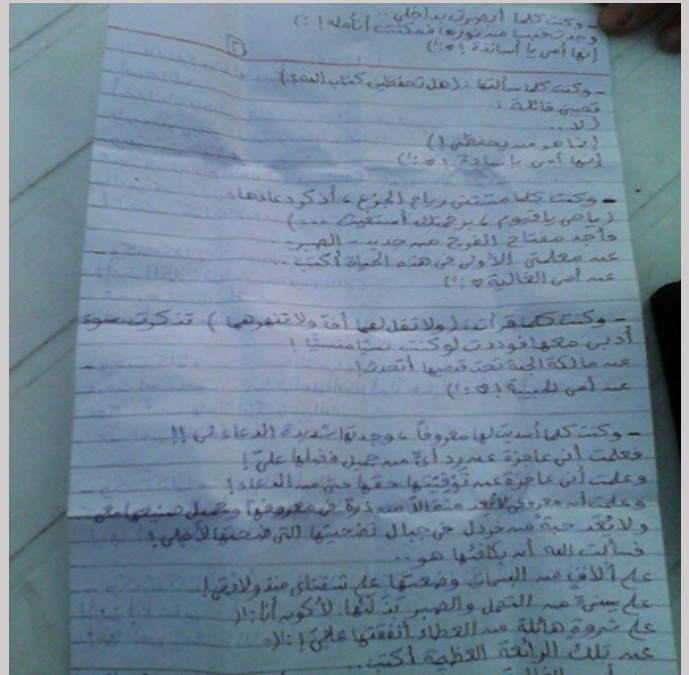 - وكنت كلما أبصرت بداخلي..
وجدت قبسا من نورها فمكثت أتأمله! :)
إنها أمي يا أساتذة! ♥:')
[٢]
- وكنت كلما سألتها: (هل تحفظين كتاب الله؟)
تجيبني قائلة:
(لا..
إنما هو من يحفظني!)
إنها أمي يا سادة! ♥:')
- وكنت كلما مستني رياح الجزع، أذكر دعاءها:
(يا حي يا قيوم، برحمتك أستغيث ...)
فأجد مفتاح الفرج من جديد - الصبر-
عن معلمتي الأولى في هذه الحياة أكتب..
عن أمي الغالية ♥:')
- وكنت كلما قرأت: (ولا تقل لهما أف ولا تنهرهما) تذكرت سوء
أدبي معها فوددت لو كنت نسيا منسيا!
عن مالكة الجنة تحت قدميها أتحدث!
عن أمي الحبيبة! ♥:')
- وكنت كلما أسديت لها معروفا، وجدتها شديدة الدعاء لي!!
فعلمت أني عاجزة عن رد أي من جميل فضلها علي!
وعلمت أني عاجزة عن توفيتها حقها حتى من الدعاء!
وعلمت أن معروفي لا يعد مثقالا من ذرة في معروفها وجميل صنيعها معي
ولا يعد حبة من خردل في جبال تضحيتها التي ضحتها لأجلي!
فسألت الله أن يكافئها هو..
على آلاف من البسمات وضعتها على شفتاي منذ ولادتي!
على سنين من التحمل والصبر بذلتها لأكون أنا:')
على ثروة هائلة من العطاء أنفقتها علي! :')
عن تلك الرائعة العظيمة أكتب..